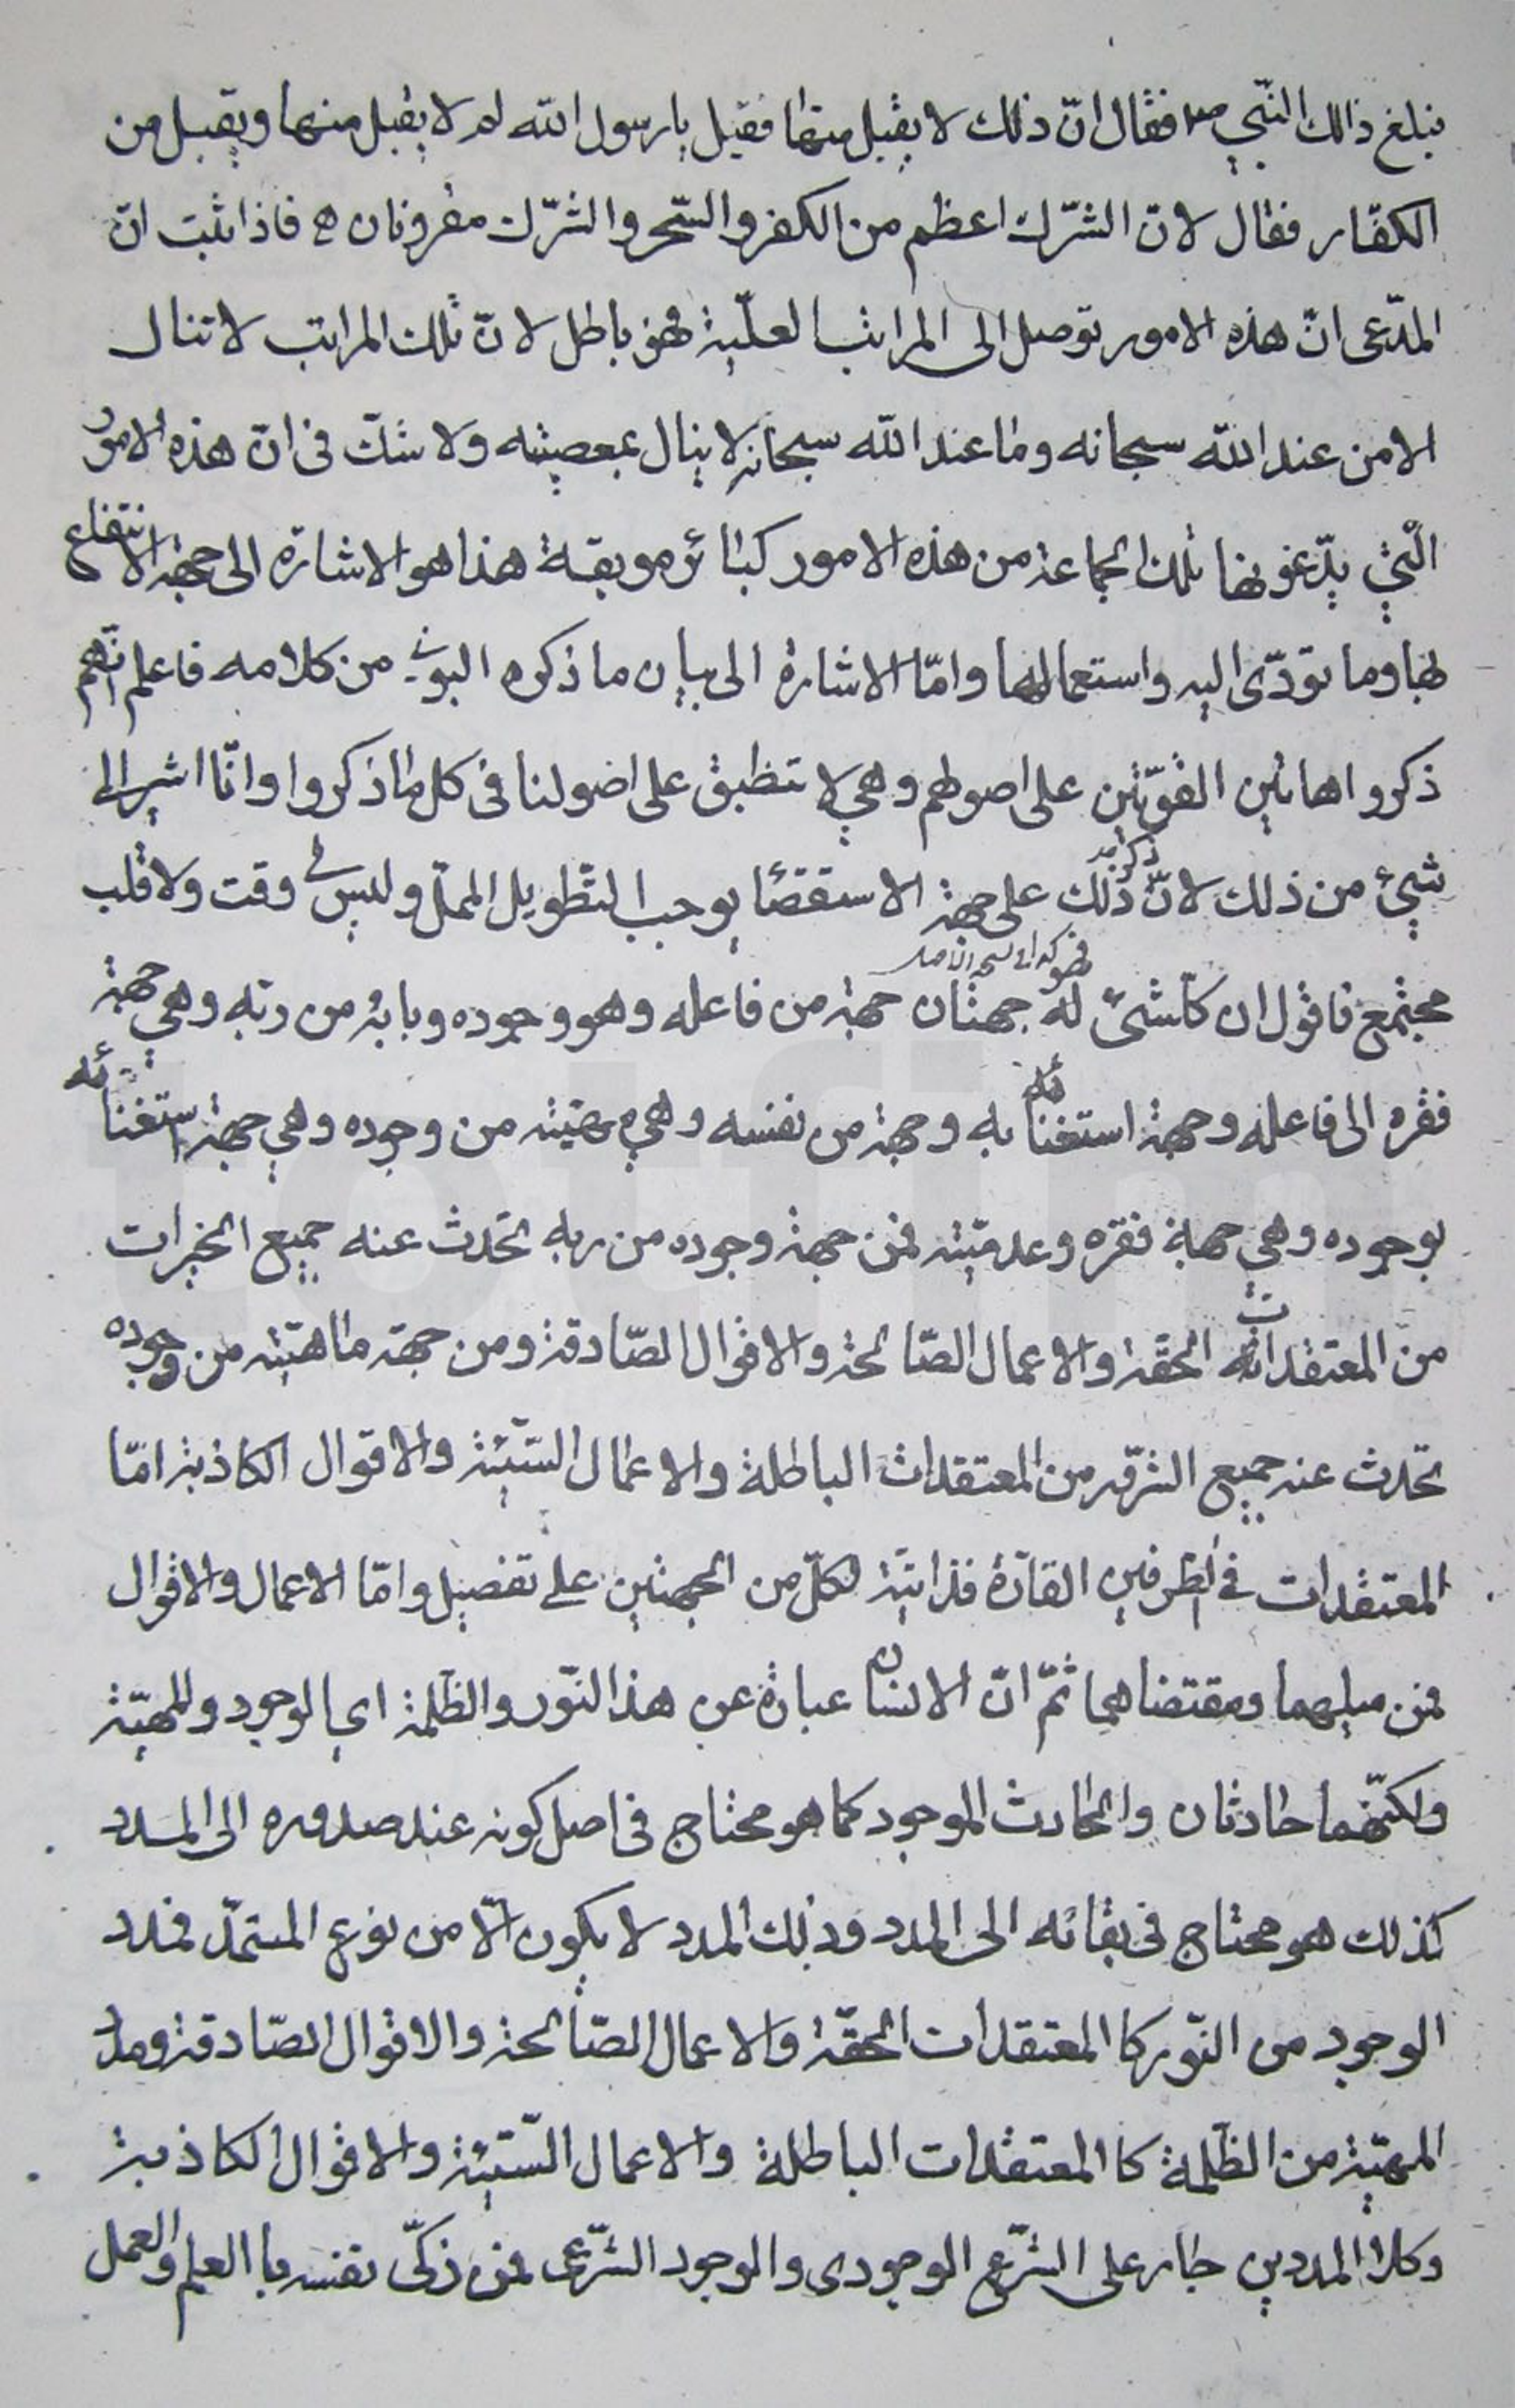 فبلغ ذالك النّبي ص فقال انّ ذلك لا يقبل منها فقيل يا رسول الله لم لا يقبل منها ويقبل من
الكفّار فقال لانّ الشّرك اعظم من الكفر والسّحر والشّرك مقرونان ه فاذا ثبت انّ
المدّعى انّ هذه الامور توصل الى المراتب العليّة فهو باطل لانّ تلك المراتب لا تنال
الا من عند الله سبحانه وما عند الله سبحانه لا ينال بمعصيته ولا شكّ فى انّ هذه الامور
الّتي يدّعونها تلك الجماعة من هذه الامور كبائر موبقة هذا هو الاشارة الى جهة الانتفاع
لها وما تودّى اليه واستعمالها وامّا الاشارة الى بيان ما ذكره البونى من كلامه فاعلم انّهم
ذكروا هاتين القوّتين على اصولهم وهي لا تنطبق على اصولنا فى كل ما ذكروا وانّا اشير الى
شيئ من ذلك لانّ ذكر ذلك على جهة الاستقصاء يوجب التّطويل المملّ وليس لى وقت ولا قلب
مجتمع فاقول ان كلّ شئ له جهتان جهة من فاعله وهو وجوده وبابه من ربّه وهي جهة
فقره الى فاعله وجهة استغنائه به وجهة من نفسه وهي مهيّته من وجوده وهي جهة استغنائه
بوجوده وهي جهة فقره وعدميّته فمن جهة وجوده من ربه تحدث عنه جميع الخيرات
من المعتقدات الحقّة والاعمال الصّالحة والاقوال الصّادقة ومن جهة ماهيّته من وجوده
تحدث عنه جميع الشّرور من المعتقدات الباطلة والاعمال السّيّئة والاقوال الكاذبة امّا
المعتقدات فى الطرفين القارّة فذاتيّة لكلّ من الجهتين على تفصيل وامّا الاعمال والاقوال
فمن ميلهما ومقتضاهما ثمّ انّ الانسان عبارة عن هذا النّور والظّلمة اي الوجود والمهيّة
ولكنّهما حادثان والحادث الموجود كما هو محتاج فى اصل كونه عند صدوره الى المدد
كذلك هو محتاج فى بقائه الى المدد وذلك المدد لا يكون الّا من نوع المستمدّ فمدد
الوجود من النّور كا المعتقدات الحقّة والاعمال الصّالحة والاقوال الصّادقة ومدد
المهيّة من الظّلمة كا المعتقدات الباطلة والاعمال السّيّئة والاقوال الكاذبة
وكلا المددين جار على الشّرع الوجودى والوجود الشّرعى فمن زكّى نفسه با العلم والعمل